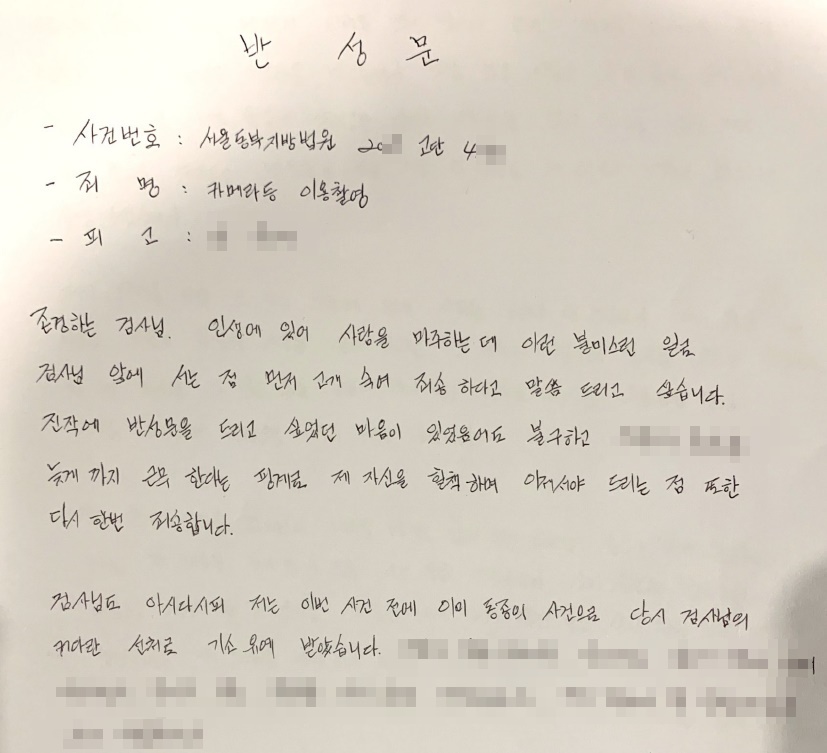 반 성 문
- 사건번호 : 서울동부지방법원 20 고단 4
- 죄 명 : 카메라등 이용촬영
- 피 고 :
존경하는 검사님. 인생에 있어 사람을 마주하는 데 이런 불미스런 일로
검사님 앞에 서는 점 먼저 고개 숙여 죄송 하다고 말씀 드리고 싶습니다.
진작에 반성문을 드리고 싶었던 마음이 있었음에도 불구하고
늦게 까지 근무 한다는 핑계로 제 자신을 힐책하며 이제서야 드리는 점 또한
다시 한번 죄송합니다.
검사님도 아시다시피 저는 이번 사건 전에 이미 동종의 사건으로 당시 검사님의
커다란 선처로 기소 유예 받았습니다.